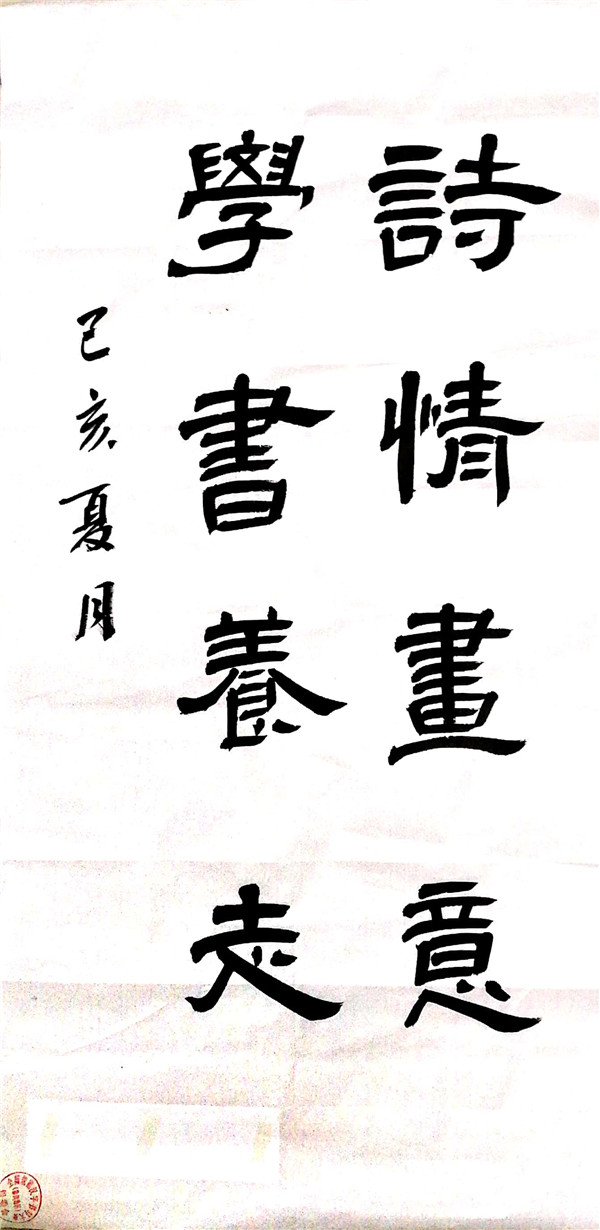 詩情畫意
學書養志
己亥夏月